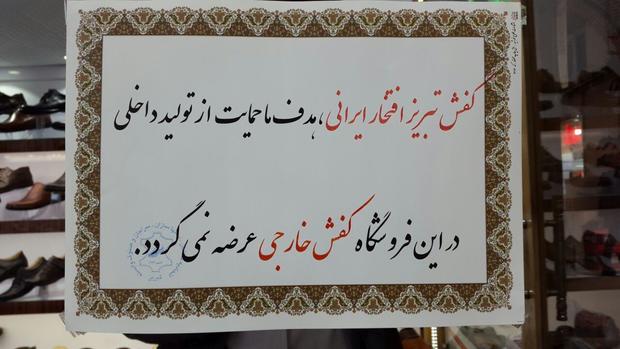 کفش تبریز افتخار ایرانی، هدف ما حمایت از تولید داخلی
در این فروشگاه کفش خارجی عرضه نمی گردد.